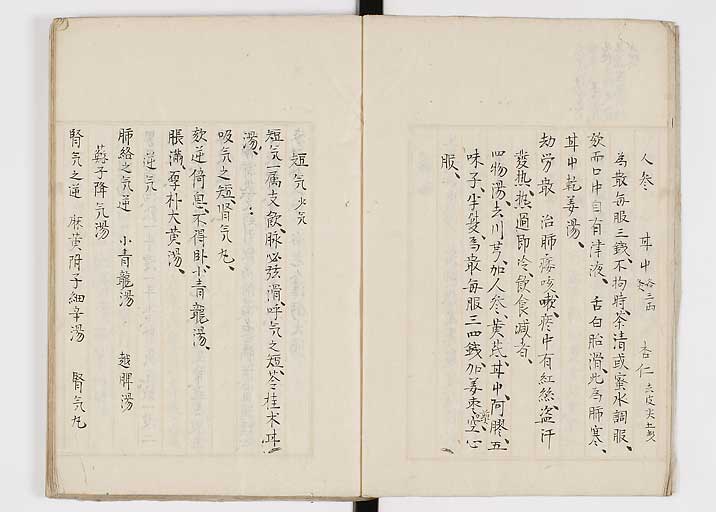 人参 甘中各三両 杏仁去皮尖土炒
為散毎服三銭、不拘時、茶清或蜜水調服、
欬而口中自有津液、舌白胎滑、此為肺寒、
甘中乾姜湯、
劫労散 治肺痿咳嗽、痰中有紅絲、盗汗
発熱、熱過即冷、飲食減者、
四物湯去川芎、加人参、黄芪、甘中、阿膠、五
味子、半夏為散、毎服三四銭、加姜棗煎空心
服、
短气 少气
短气一属支飲、脉必弦滑、呼气之短、苓桂朮甘
湯、
吸气之短、腎气丸、
欬逆倚息、不得卧、小青龍湯、
脹満、厚朴大黄湯、
逆气
肺絡之气逆 小青龍湯 越脾湯
蘇子降气湯
腎气之逆 麻黄附子細辛湯 腎气丸